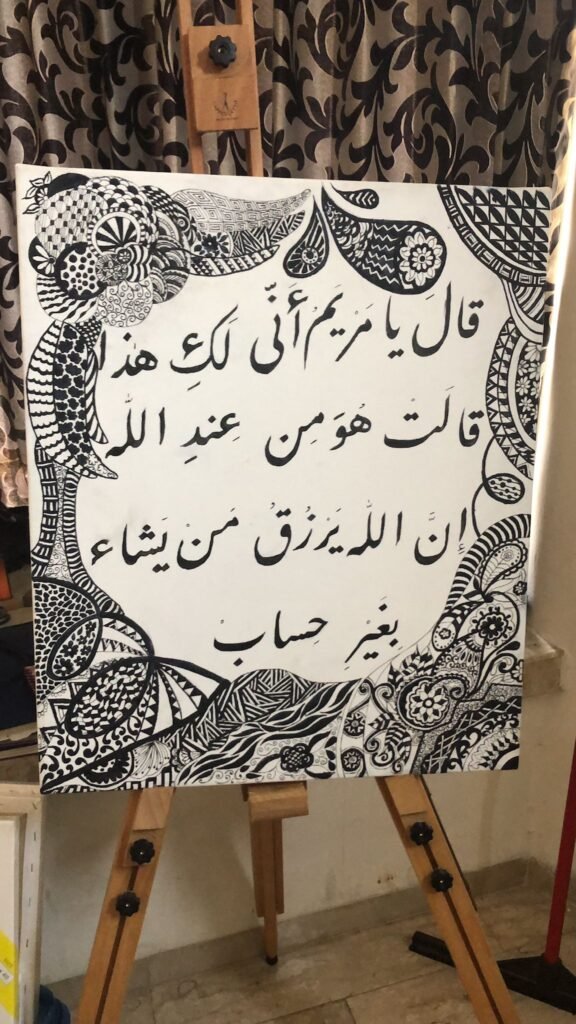 قالَ يا مَريَمُ أَنّى لَكِ هٰذا
قالَتْ هُوَ مِن عِندِ اللّه
إِنَّ اللّه يَرْزُقُ مَنْ يَشاء
بِغَيْرِ حِسابْ